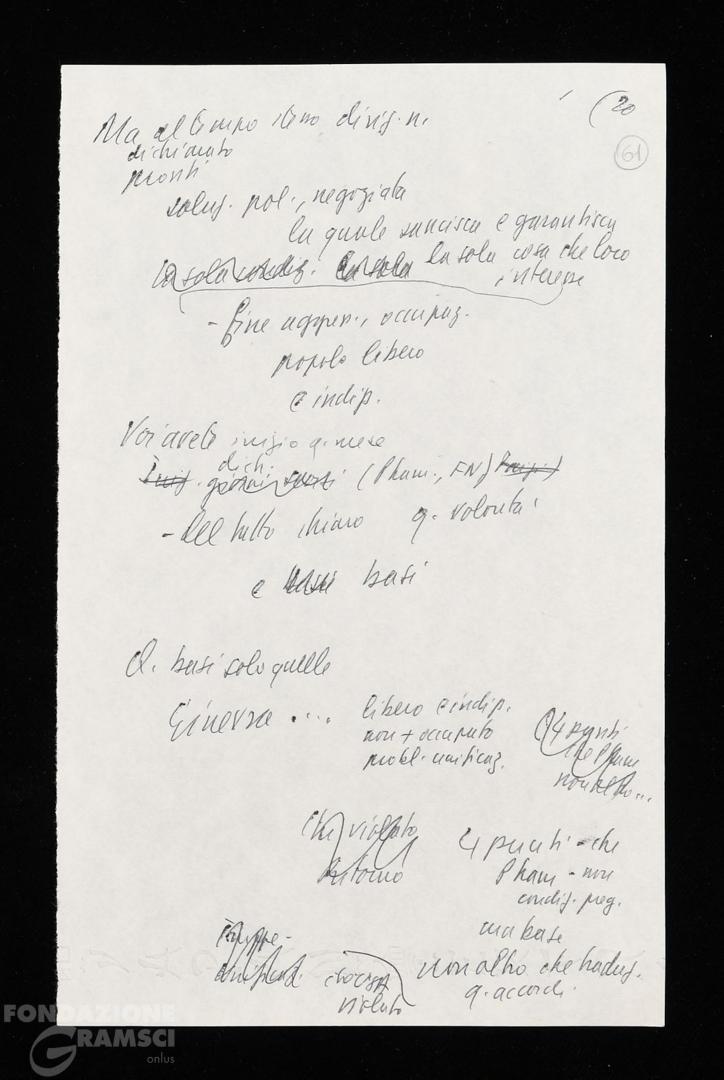 (20
61
Ma al tempo stesso dirig. n.
dichiarato
pronti
soluz. pol., negoziata
la quale sancisca e garantisca
la sola condiz. la sola la sola cosa che loro
interessa
- fine aggress., occupaz.
popolo libero
e indip.
Voi avete inizio q. mese
dich.
(Pham., FN)
- Del tutto chiaro q. volontà
e basi basi
Q. basi solo quelle
Ginevra ....
libero e indip.
non + occupato
probl. unificaz.
(4 punti
che Pham
non altro...
Chi violato
Ritorno
4 punti - che
Pham - non
condiz. preg.
ma base
non altro che traduz.
q. accordi.
violato
FONDAZIONE
GRAMSCI
onlus